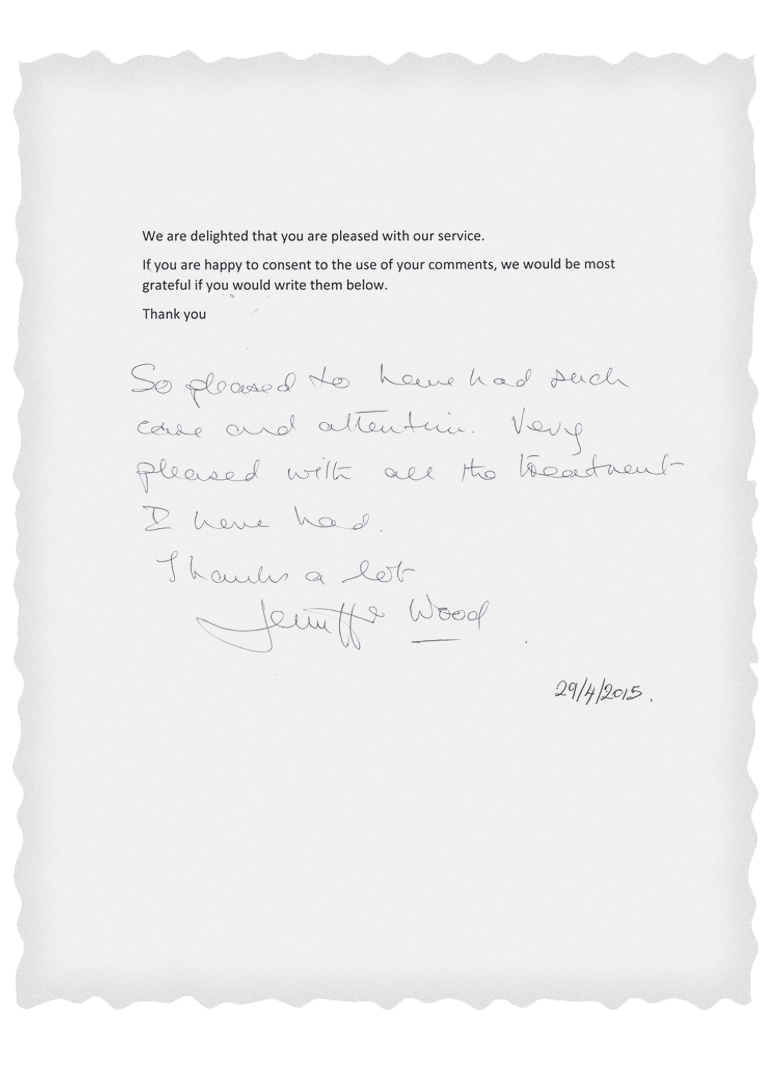 We are delighted that you are pleased with our service.
If you are happy to consent to the use of your comments, we would be most
grateful if you would write them below.
Thank you
So pleased to have had such
care and attention. Very
pleased with all the treatment
I have had.
Thanks a lot
Wood
29/4/2015.